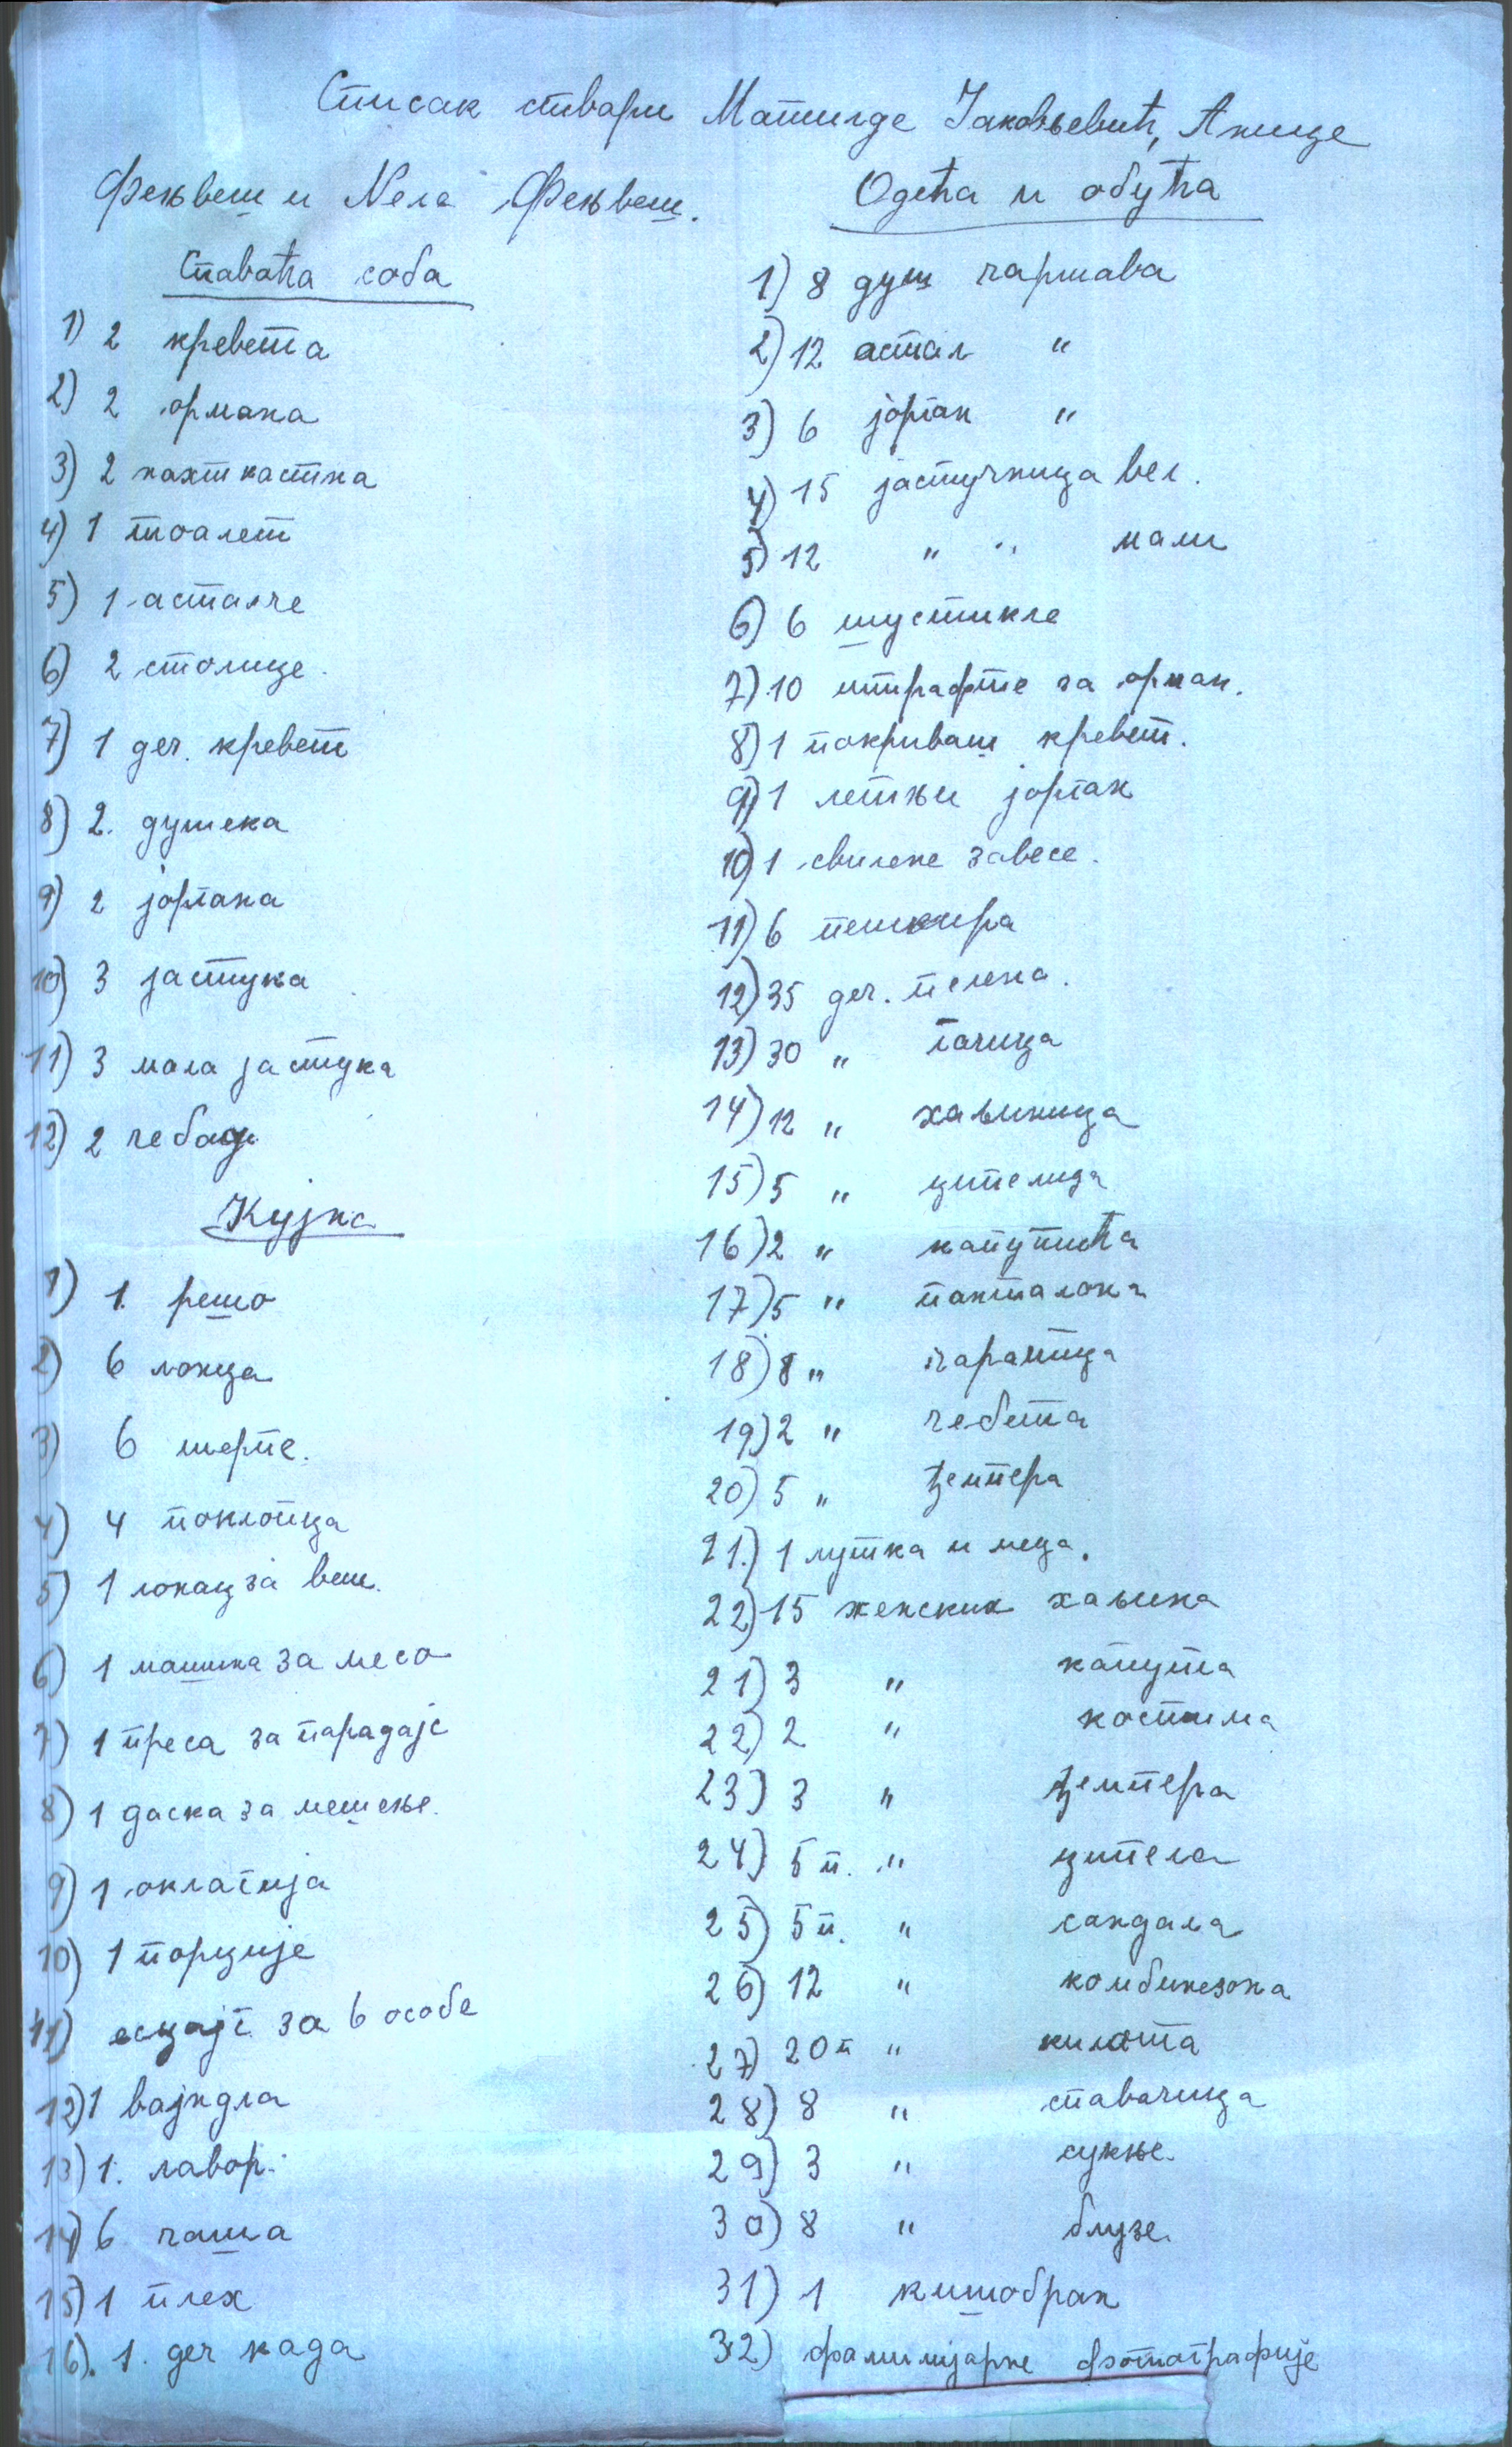 Списак ствари Матилде Јаковљевић, Анице
Фењвеш и Неле Фењвеш.
Спаваћа соба
1) 2 кревета
2) 2 ормана
3) 2 нахткастна
4) 1 тоалет
5) 1 асталче
6) 2 столице.
7) 1 деч. кревет
8) 2. душека
9) 2 јоргана
10) 3 јастука
11) 3 мала јастука
12) 2 ћебад
Кујна
1) 1. решо
2) 6 лонца
3) 6 шерпе.
4) 4 поклопца
5) 1 лонац за веш.
6) 1 машина за месо
7) 1 преса за парадајс
8) 1 даска за мешење.
9) 1 оклагија
10) 1 порције
11) есцајг за 6 особе
12) 1 вајндла
13) 1. лавор.
14) 6 чаша
15) 1 плех
16). 1. деч када
Одећа и обућа
1) 8 душ чаршава
2) 12 астал "
3) 6 јорган "
4) 15 јастучница вел.
5) 12 " " мали
6) 6 шустикле
7) 10 штрафте за орман.
8) 1 покриваш кревет.
9) 1 летњи јорган
10) 1 свилене завесе.
11) 6 пешкира
12) 35 деч. пелена.
13) 30 " гаћица
14) 12 " хаљиница
15) 5 " ципелица
16) 2 " капутића
17) 5 " панталона
18) 8 " чарапица
19) 2 " ћебета
20) 5 " џемпера
21.) 1 лутка и меца.
22) 15 женских хаљина
21) 3 " капута
22) 2 " костима
23) 3 " џемпера
24) 5 п. " ципела
25) 5 п. " сандала
26) 12 " комбинезона
27) 20 п " килота
28) 8 " спаваћица
29) 3 " сукње.
30) 8 " блузе.
31) 1 кишобран
32) фамилијарне фотографије